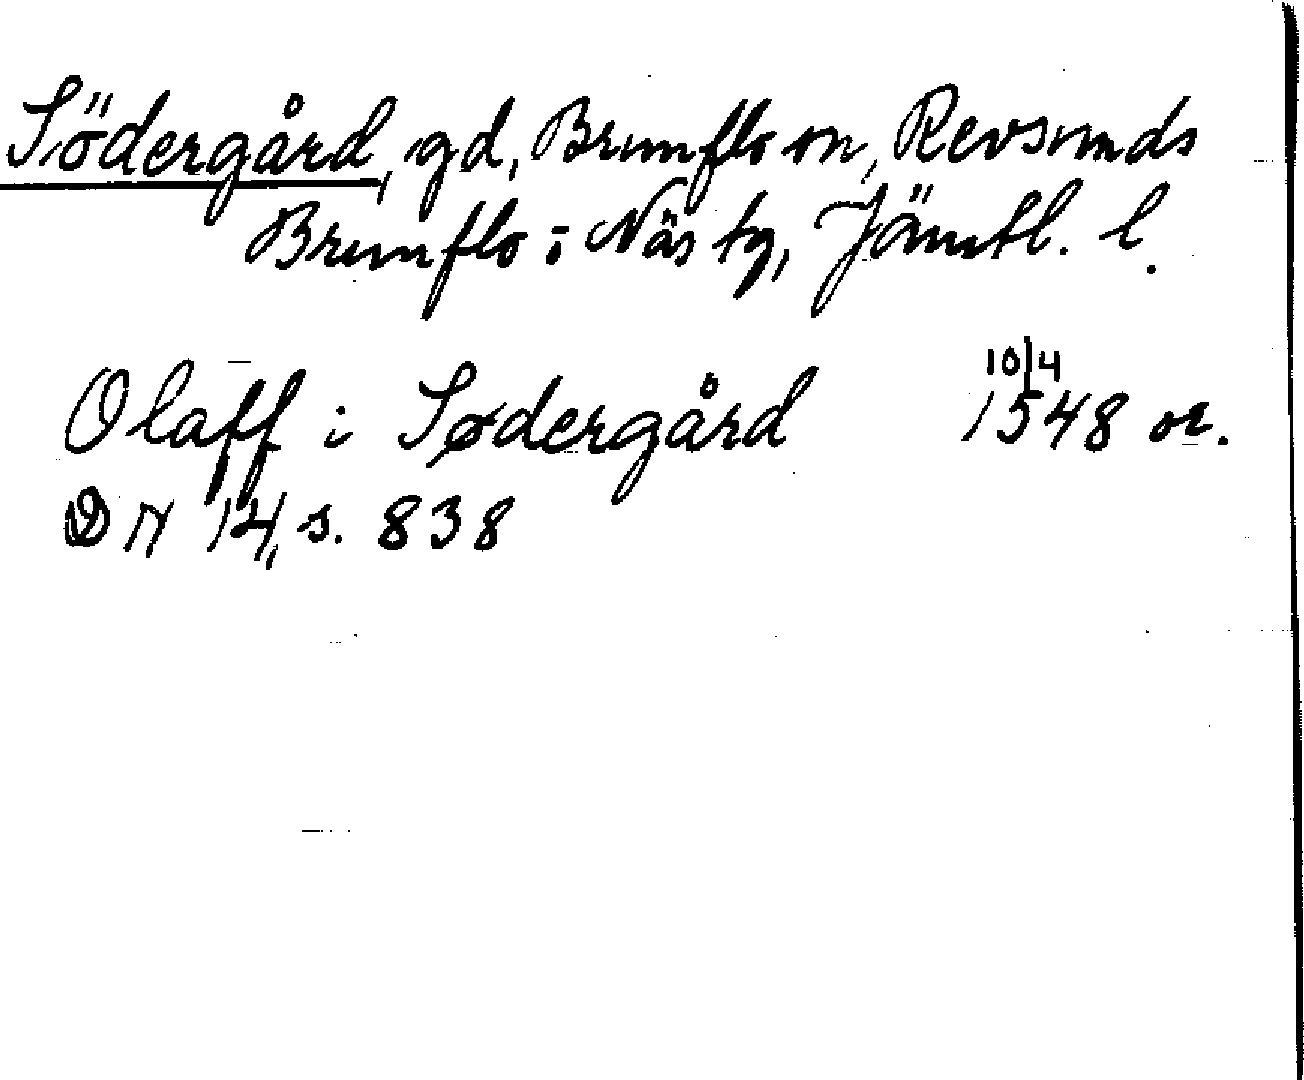 Södergård, gd, Brunflo sn, Revsunds
Brunflo o Näs tg, Jämtl. l.
Olaff i Sødergård 10/4 1548 or.
DN 14, s. 838